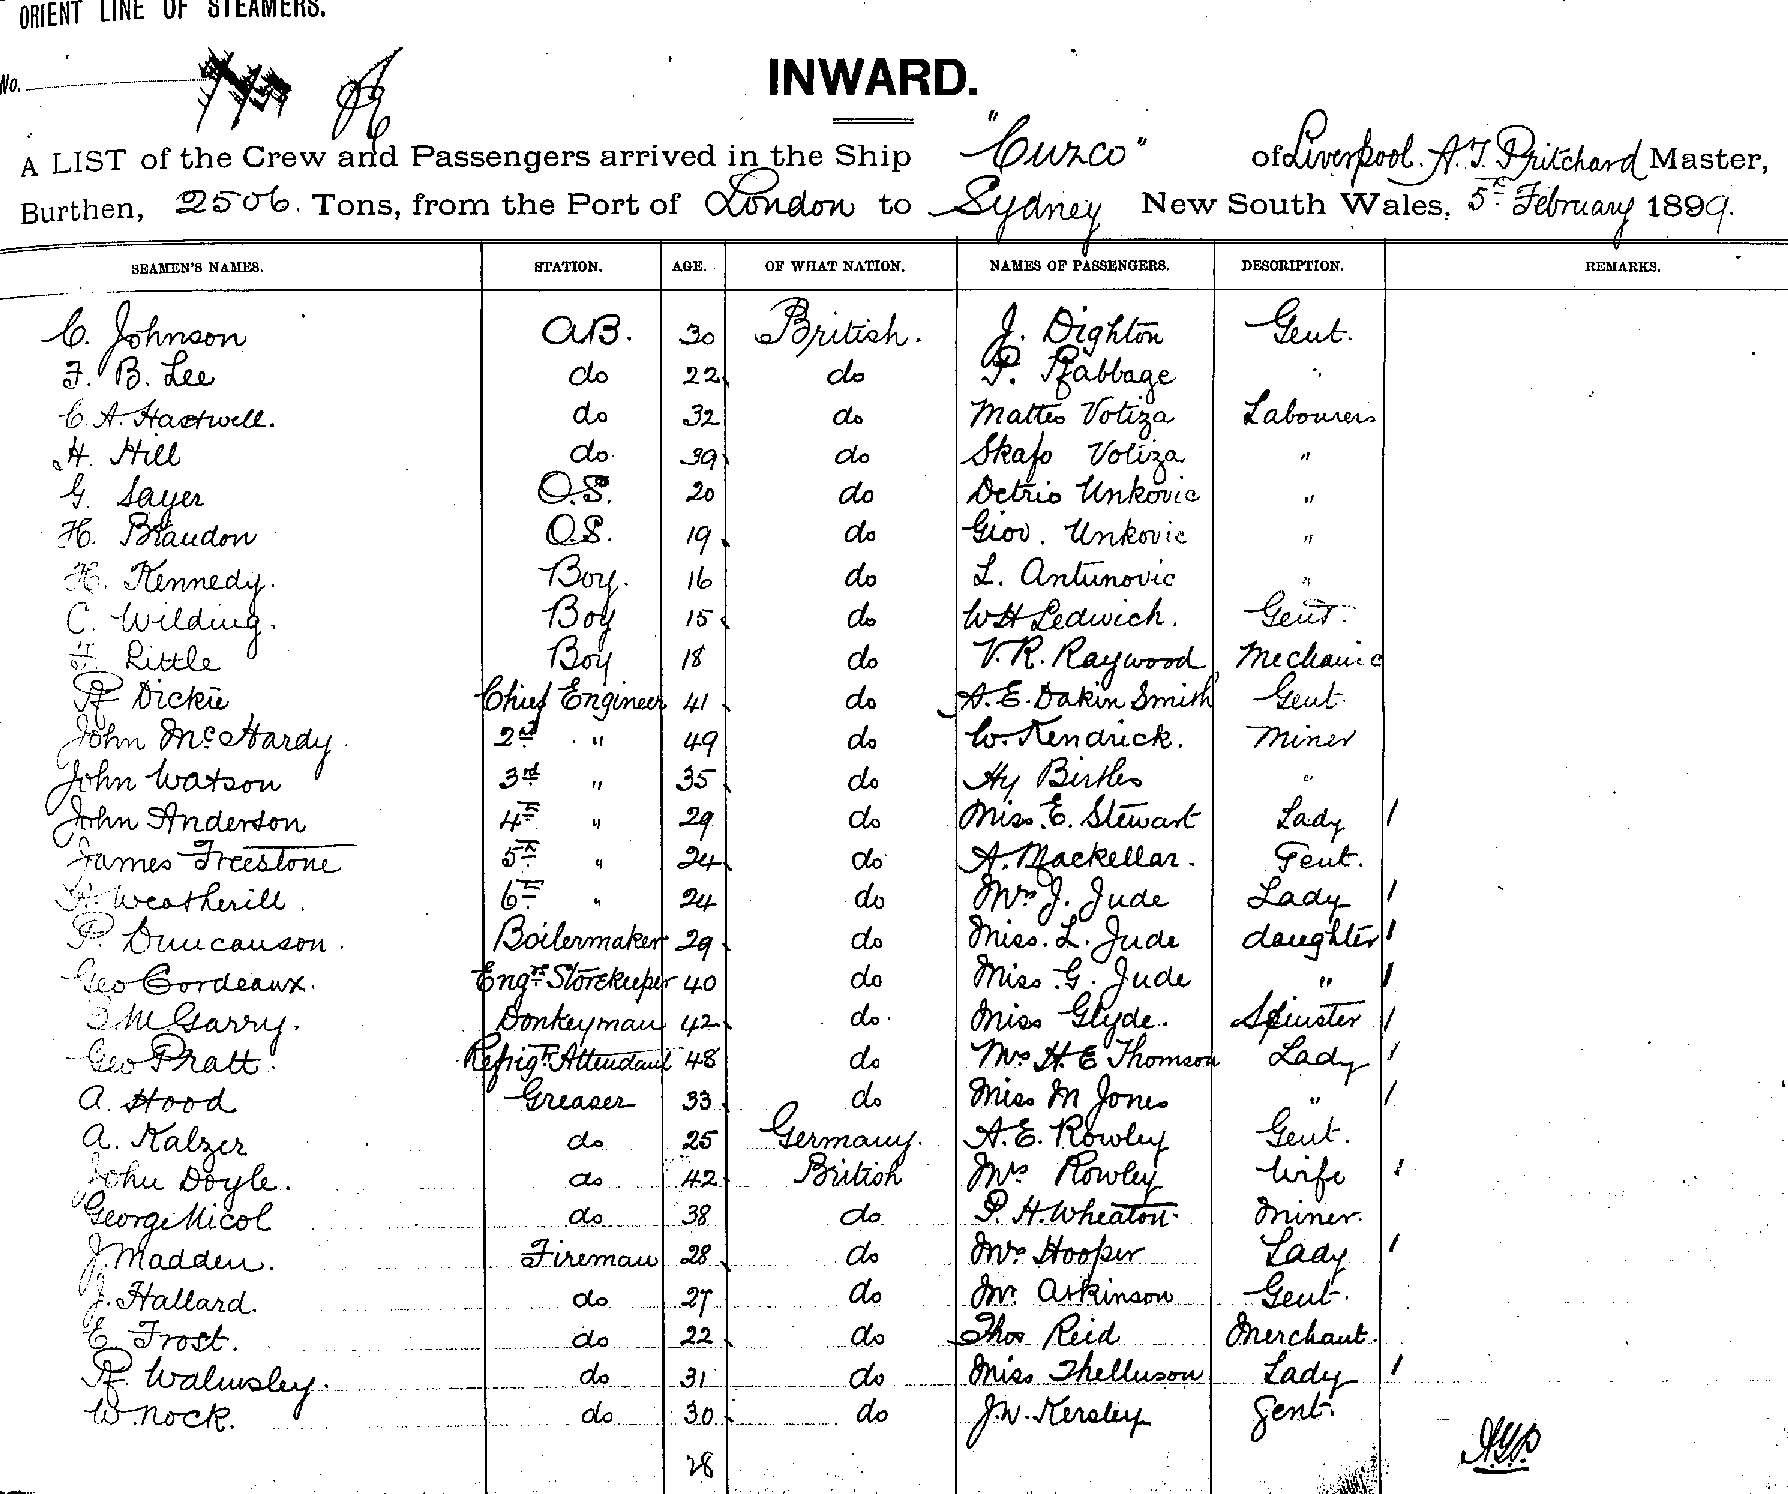 ORIENT LINE OF STEAMERS.
No.
INWARD.
A LIST of the Crew and Passengers arrived in the Ship "Cuzco" of Liverpool. A. J. Pritchard Master,
Burthen, 2506. Tons, from the Port of London to Sydney New South Wales, 5th February 1899.
SEAMEN'S NAMES. STATION. AGE. OF WHAT NATION. NAMES OF PASSENGERS. DESCRIPTION. REMARKS.
C. Johnson A.B. 30 British. J. Dighton Gent.
F. B. Lee do 22 do P. Babbage "
C. A. Hartwell. do 32 do Matteo Votiza Labourers
H. Hill do. 39 do Skafo Votiza "
G. Sayer O.S. 20 do Detrio Unkovic "
H. Braudon O.S. 19 do Giov. Unkovic "
H. Kennedy. Boy. 16 do L. Antunovic "
C. Wilding. Boy 15 do W H Ledwich. Gent.
F. Little Boy 18 do V. R. Raywood Mechanic
R Dickie Chief Engineer 41 do A. E. Dakin Smith Gent.
John McHardy. 2nd " 49 do W. Kendrick. Miner
John Watson 3rd " 35 do Hy Birtles "
John Anderson 4th " 29 do Miss. E. Stewart Lady /
James Freestone 5th " 24 do A. Mackellar. Gent.
Weatherill. 6th " 24 do Mrs J. Jude Lady /
P. Duncanson. Boilermaker 29 do Miss. L. Jude daughter /
Geo Cordeaux. Engrs Storekeeper 40 do Miss. G. Jude " /
McGarry. Donkeyman 42 do. Miss Glyde. Spinster /
Geo Pratt. Refrigr Attendant 48 do Mrs H. E Thomson Lady /
A. Hood Greaser 33 do Miss M Jones " /
A. Kalzer do 25 Germany. A. E. Rowley Gent.
John Doyle. do 42 British Mrs Rowley Wife /
George Nicol do 38 do P. H. Wheaton. Miner.
J. Madden. Fireman 28 do Mrs Hooper Lady /
J. Hallard. do 27 do Mr. Atkinson Gent.
E Frost. do 22 do Thos Reid Merchant.
R Walmsley. do 31 do Miss Thelluson Lady /
W. Nock. do 30 do J. W. Kersley Gent.
28